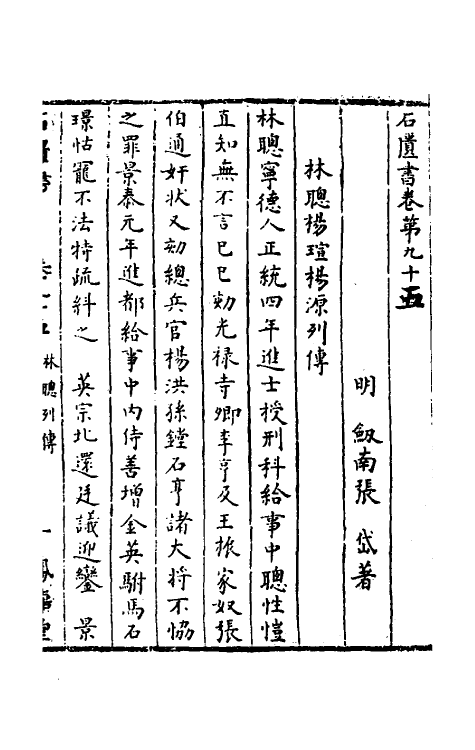 石匱書卷第九十五
明 劔南張 岱著
林聰楊瑄楊源列傳
林聰寧德人正統四年進士授刑科給事中聰性愷
直知無不言己巳劾光禄寺卿李亨及王振家奴張
伯通奸狀又劾總兵官楊洪孫鏜石亨諸大將不恊
之罪景泰元年進都給事中内侍善增金英駙馬石
璟怙寵不法特疏糾之 英宗北還廷議迎鑾 景
林聰列傳
一